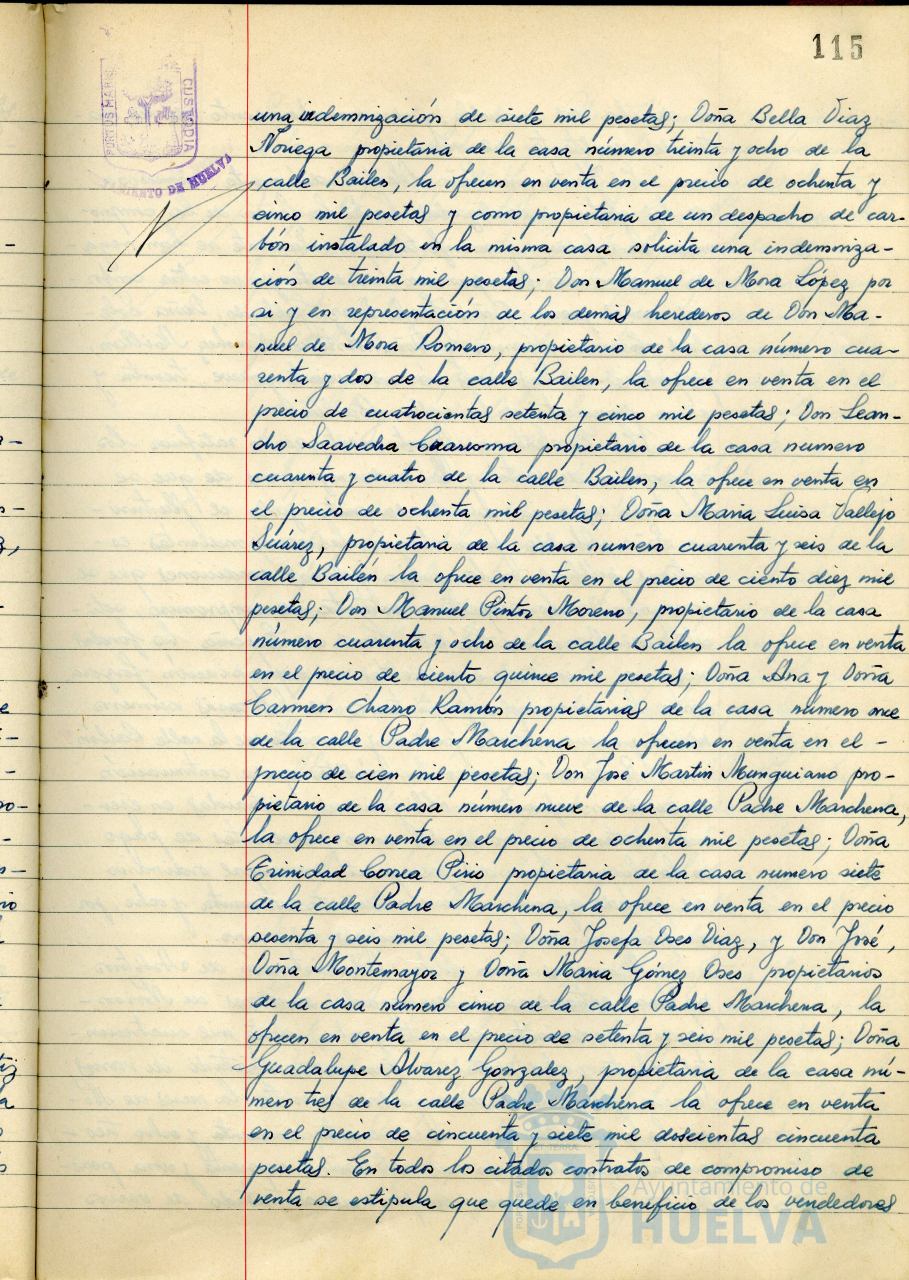 115
PORTUS MARIS CUSTODIA
AYUNTAMIENTO DE HUELVA
una indemnización de siete mil pesetas; Doña Bella Diaz
Noriega propietaria de la casa número treinta y ocho de la
calle Bailen, la ofrecen en venta en el precio de ochenta y
cinco mil pesetas y como propietaria de un despacho de car-
bón instalado en la misma casa solicita una indemniza-
ción de treinta mil pesetas; Don Manuel de Mora López por
si y en representación de los demás herederos de Don Ma-
nuel de Mora Romero, propietario de la casa número cua-
renta y dos de la calle Bailen, la ofrece en venta en el
precio de cuatrocientas setenta y cinco mil pesetas; Don Lean-
dro Saavedra propietario de la casa numero
cuarenta y cuatro de la calle Bailen, la ofrece en venta en
el precio de ochenta mil pesetas; Doña Maria Luisa Vallejo
Suárez, propietaria de la casa numero cuarenta y seis de la
calle Bailén la ofrece en venta en el precio de ciento diez mil
pesetas; Don Manuel Pintor Moreno, propietario de la casa
número cuarenta y ocho de la calle Bailen la ofrece en venta
en el precio de ciento quince mil pesetas; Doña Ana y Doña
Carmen Charro Ramón propietarias de la casa número once
de la calle Padre Marchena la ofrecen en venta en el -
precio de cien mil pesetas; Don José Martin Munguiano pro-
pietario de la casa número nueve de la calle Padre Marchena,
la ofrece en venta en el precio de ochenta mil pesetas; Doña
Trinidad Correa Pirio propietaria de la casa numero siete
de la calle Padre Marchena, la ofrece en venta en el precio
sesenta y seis mil pesetas; Doña Josefa Oses Diaz, y Don José,
Doña Montemayor y Doña Maria Gómez Oses propietarios
de la casa numero cinco de la calle Padre Marchena, la
ofrecen en venta en el precio de setenta y seis mil pesetas; Doña
Guadalupe Alvarez Gonzalez, propietaria de la casa nú-
mero tres de la calle Padre Marchena la ofrece en venta
en el precio de cincuenta y siete mil doscientas cincuenta
pesetas. En todos los citados contratos de compromiso de
venta se estipula que quede en beneficio de los vendedores
Ayuntamiento de
HUELVA